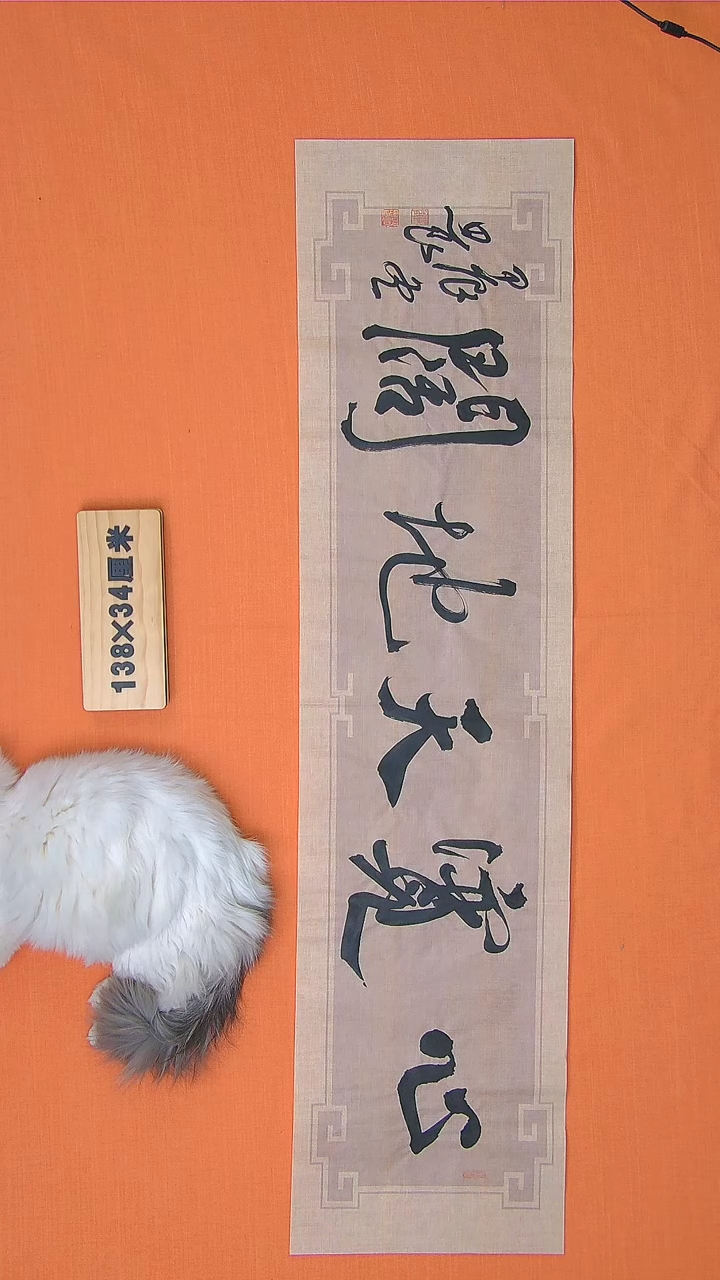 心寬天地闊
138×34厘米